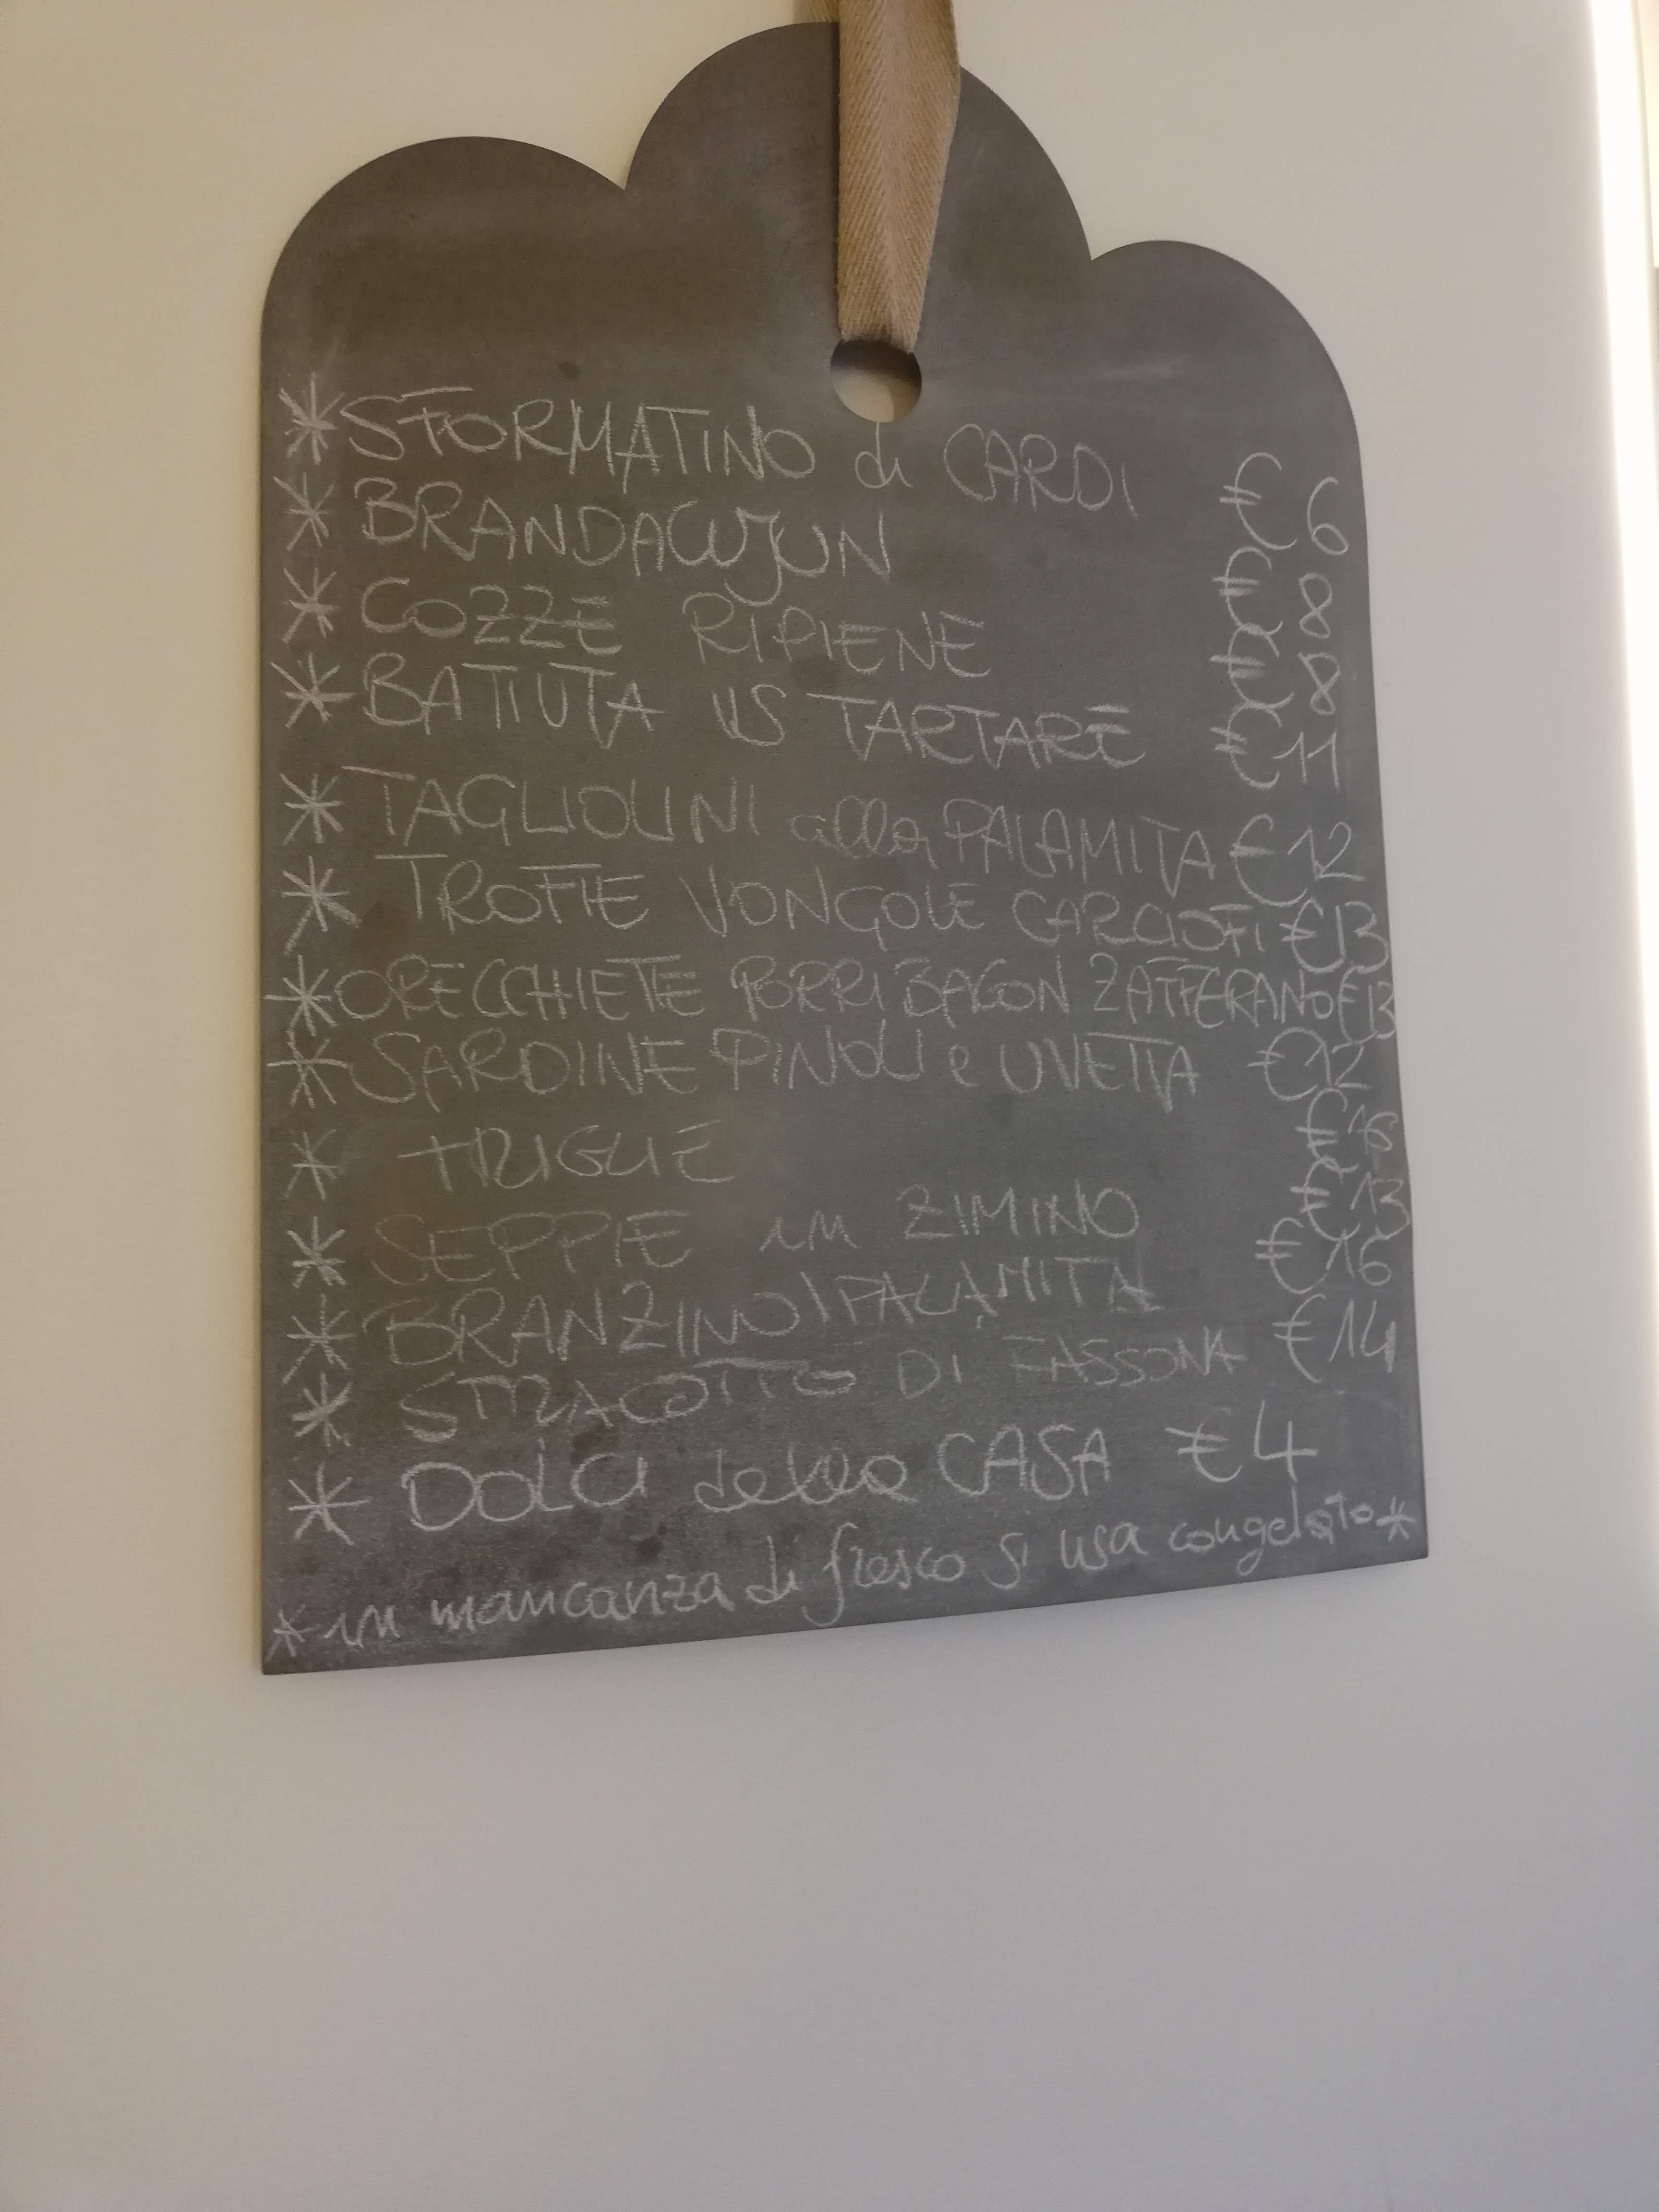 * SFORMATINO di CARDI € 6
* BRANDACUJUN € 8
* COZZE RIPIENE € 8
* BATTUTA VS TARTARE € 11
* TAGLIOLINI alla PALAMITA € 12
* TROFIE VONGOLE CARCIOFI € 13
* ORECCHIETTE PORRI BACON ZAFFERANO € 13
* SARDINE PINOLI e UVETTA € 12
* TRIGLIE € 16
* SEPPIE in ZIMINO € 13
* BRANZINO/PALAMITA € 16
* STRACOTTO DI FASSONA € 14
* DOLCI della CASA € 4
* in mancanza di fresco si usa congelato *